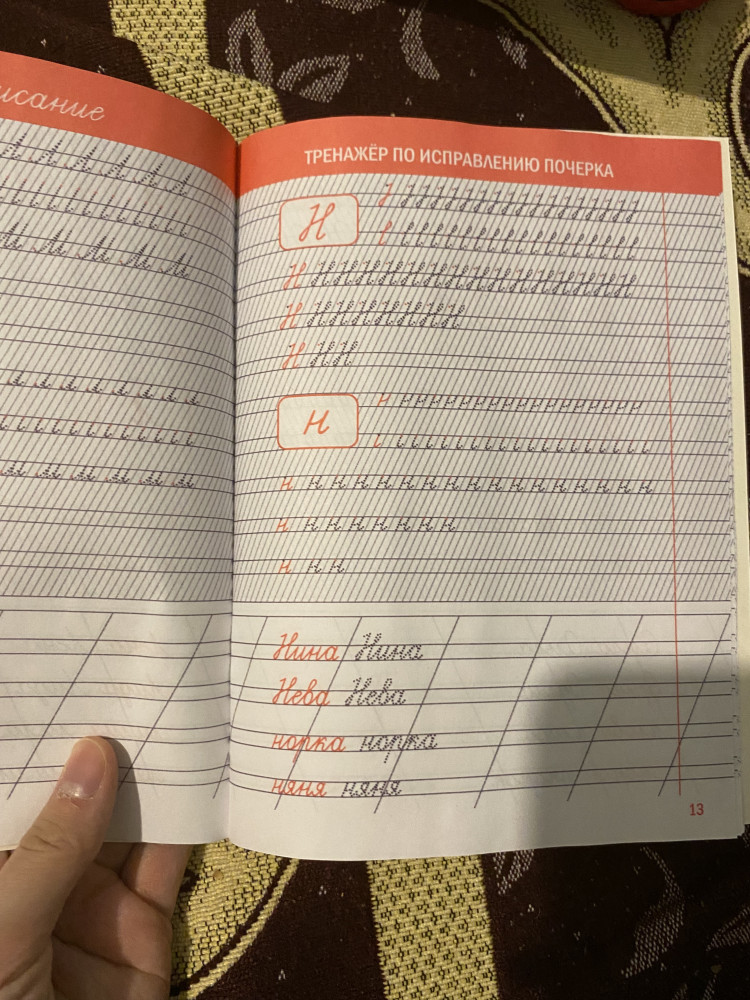 исание
ТРЕНАЖЁР ПО ИСПРАВЛЕНИЮ ПОЧЕРКА
Н
Н Н Н Н Н Н Н Н Н Н Н Н Н Н Н
Н Н Н Н Н Н Н Н
Н Н Н
н
н н н н н н н н н н н н н н н н н
н н н н н н н н
н н н
Нина Нина
Нева Нева
норка норка
няня няня
13